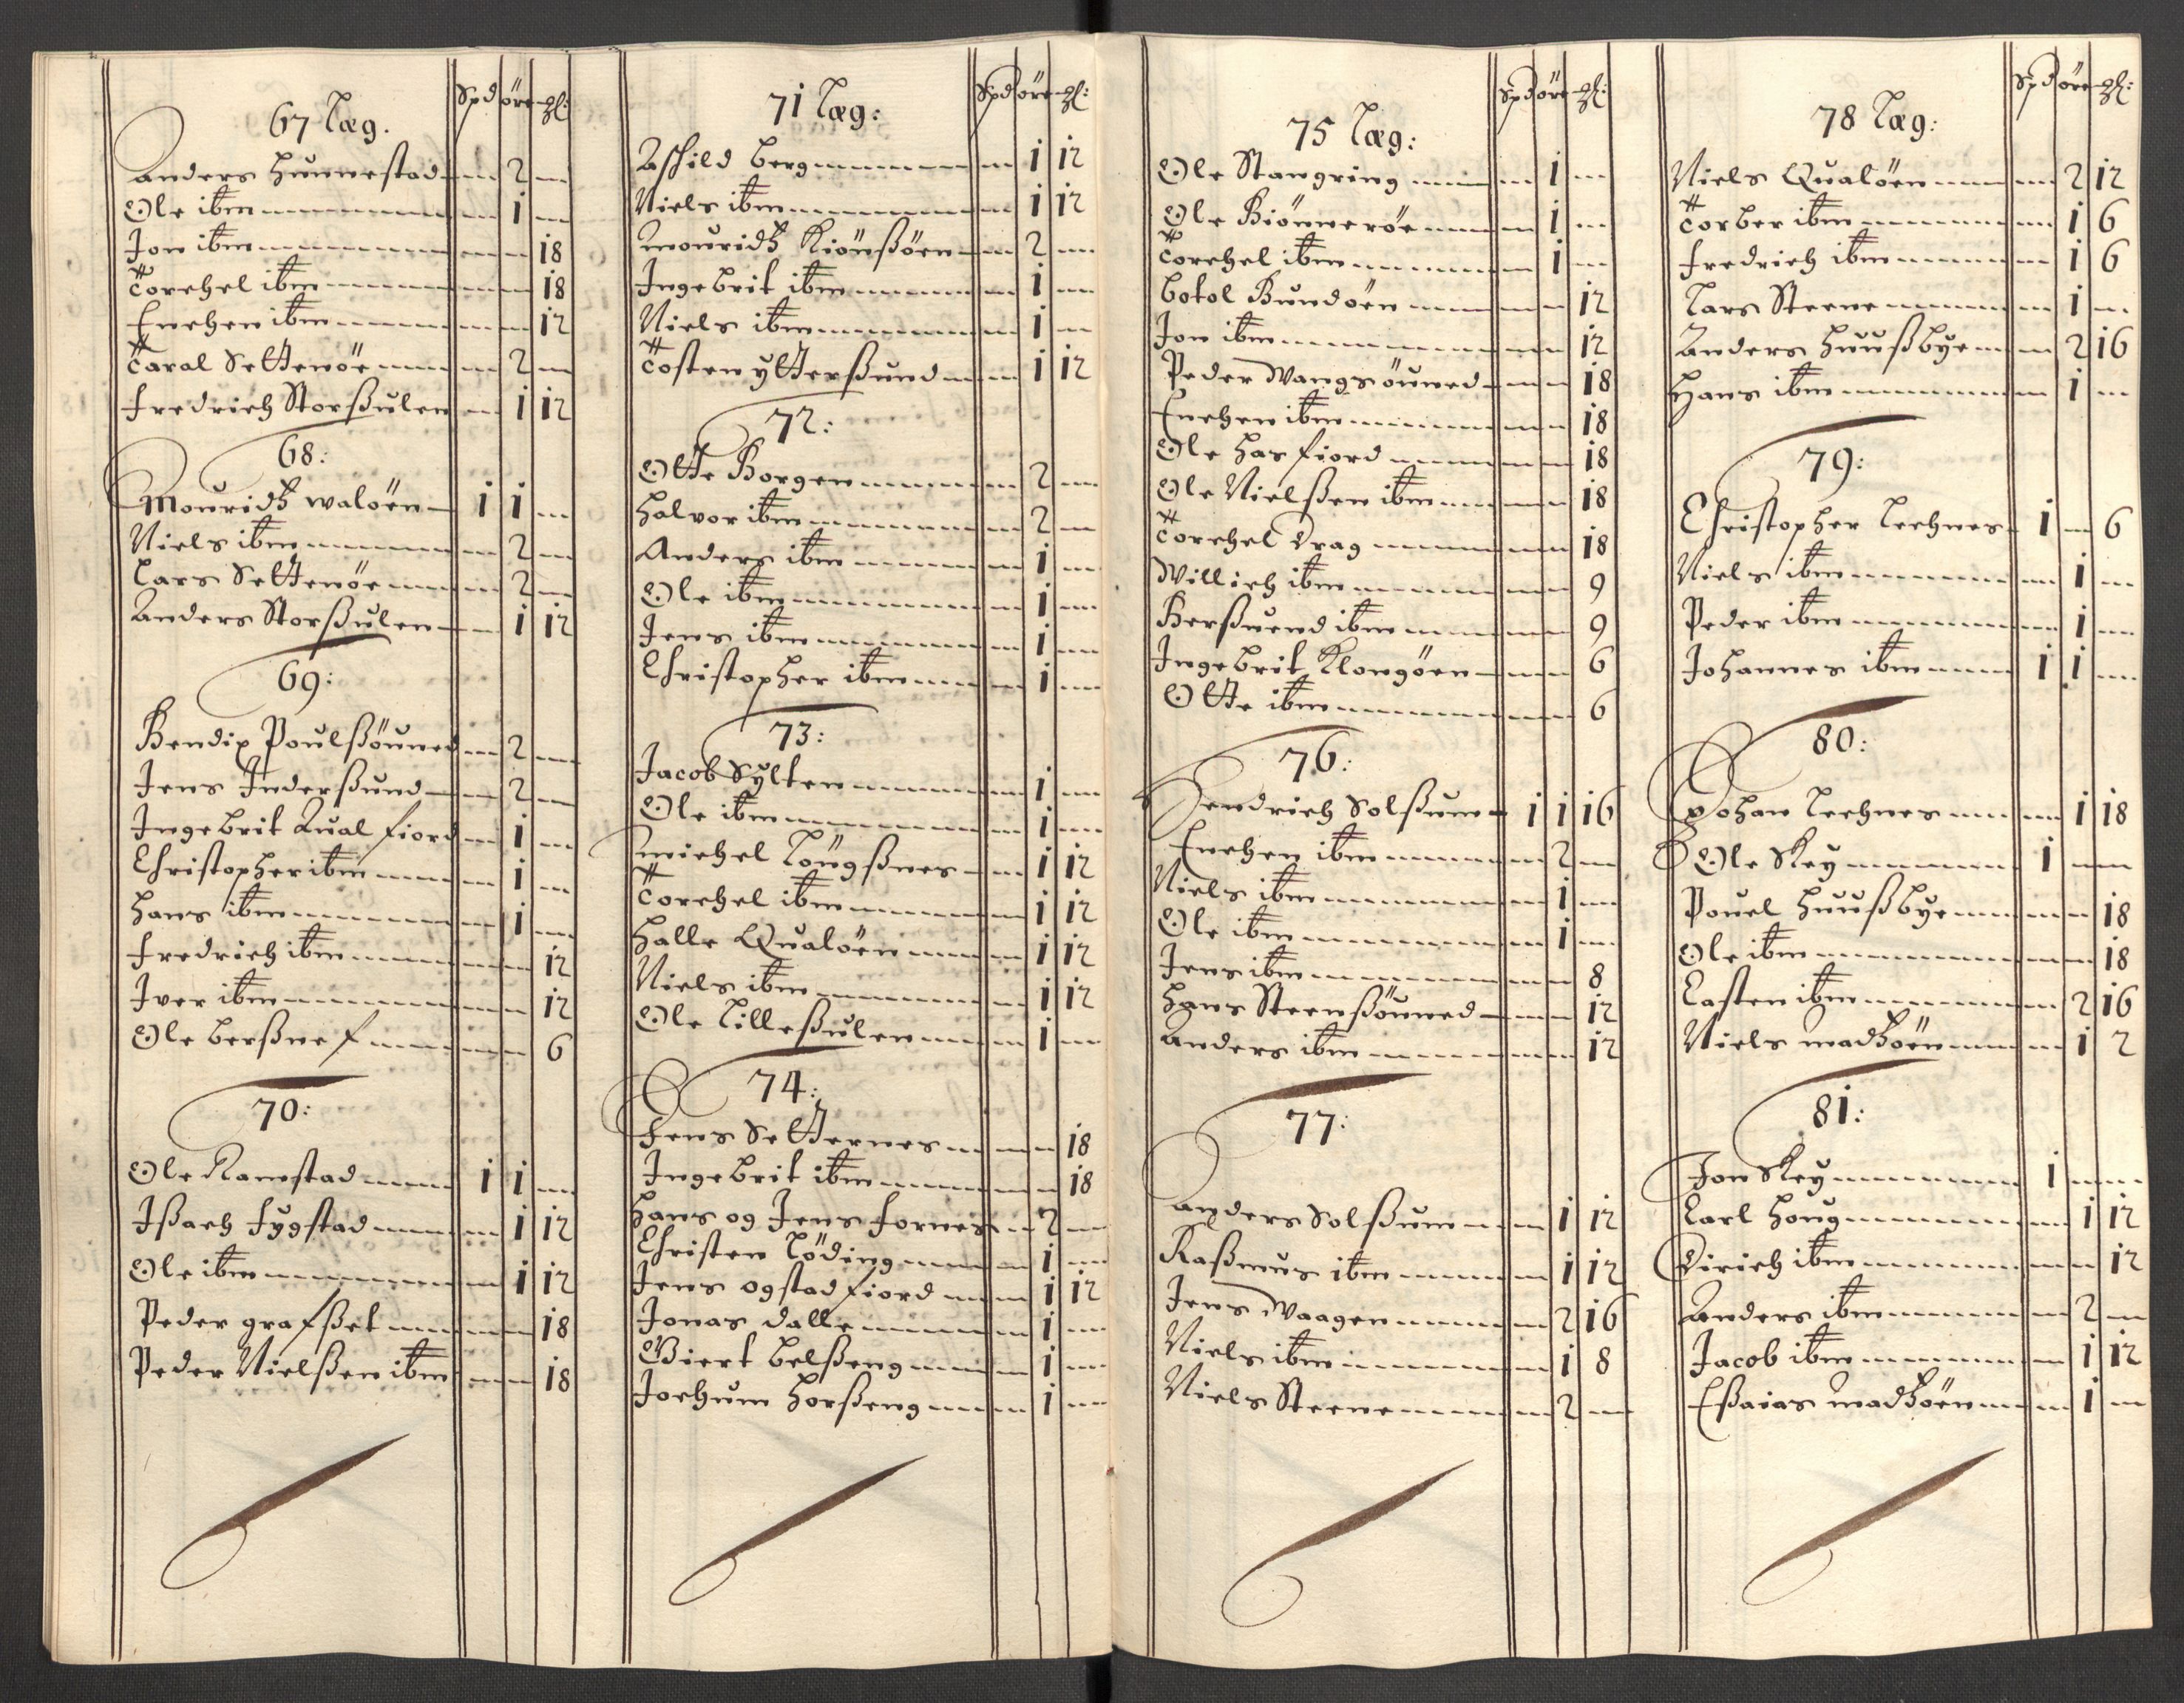 Spd öre ꝑl:
67 Læg.
Anders Hunnestad 2
Ole ibm 1
Jon ibm 18
Torchel ibm 18
Enchen ibm 12
Taral Settenöe 2
Fredrich Storßulen 1 12
68:
Mouridtz waløen 1 1
Niels ibm 2
Lars Settenöe 2
Anders Storßulen 1 12
69:
Bendix Poulßöuned 2
Jens Inderßund 2
Ingebrit Qualfiord 1
Christopher ibm 1
Hans ibm 1
Fredrich ibm 12
Iver ibm 12
Ole Berßnef 6
70:
Ole Ramstad 1 1
Ißach Fygstad 1 12
Ole ibm 1 12
Peder grafßet 18
Peder Nielßen ibm 18
Spd öre ꝑl:
71 Læg:
Aschild Berg 1 12
Niels ibm 1 12
Mouridtz Kiönßöen 2
Ingebrit ibm 1
Niels ibm 1
Tosten ytterßund 1 12
72:
Otte Borgen 2
Halvor ibm 2
Anders ibm 1
Ole ibm 1
Jens ibm 1
Christopher ibm 1
73:
Jacob Sylten 1
Ole ibm 1
Michel Löugßnes 1 12
Torchel ibm 1 12
Halle Qualöen 1 12
Niels ibm 1 12
Ole Lilleßulen 1
74:
Jens Setternes 18
Ingebrit ibm 18
Hans og Jens Fornes 2
Christen Löding 1
Jens ogstadfiord 1 12
Jonas Dalle 1
Giert Belßeng 1
Jochum Horßeng 1
Spd öre ꝑl:
75 Læg:
Ole Stangring 1
Ole Biönneröe 1
Torchel ibm 1
Botol Bundöen 12
Jon ibm 12
Peder Wangsöuned 18
Enchen ibm 18
Ole Hasfiord 18
Ole Nielßen ibm 18
Torchel Drag 18
Willich ibm 9
Berßuend ibm 9
Ingebrit Klongöen 6
Otte ibm 6
76:
Hendrich Solßum 1 1 16
Enchen ibm 2
Niels ibm 1
Ole ibm 1
Jens ibm 8
Hans Steenßöuned 12
Anders ibm 12
77:
Anders Solßum 1 12
Raßmus ibm 1 12
Jens Waagen 2 16
Niels ibm 1 8
Niels Steene 2
Spd öre ꝑl:
78 Læg:
Niels Qualöen 2 12
Torber ibm 1 6
Fredrich ibm 1 6
Lars Steene 1
Anders Huußbye 2 16
Hans ibm 1
79:
Christopher Lechnes 1 6
Niels ibm 1
Peder ibm 1
Johannes ibm 1 1
80:
Johan Lechnes 1 18
Ole Skey 1
Pouel Huußbye 18
Ole ibm 18
Casten ibm 2 16
Niels Madtzöen 1 2
81:
Jon Skey 1
Carl Houg 1 12
Dirich ibm 12
Anders ibm 2
Jacob ibm 1 12
Eßaias Madtzöen 1